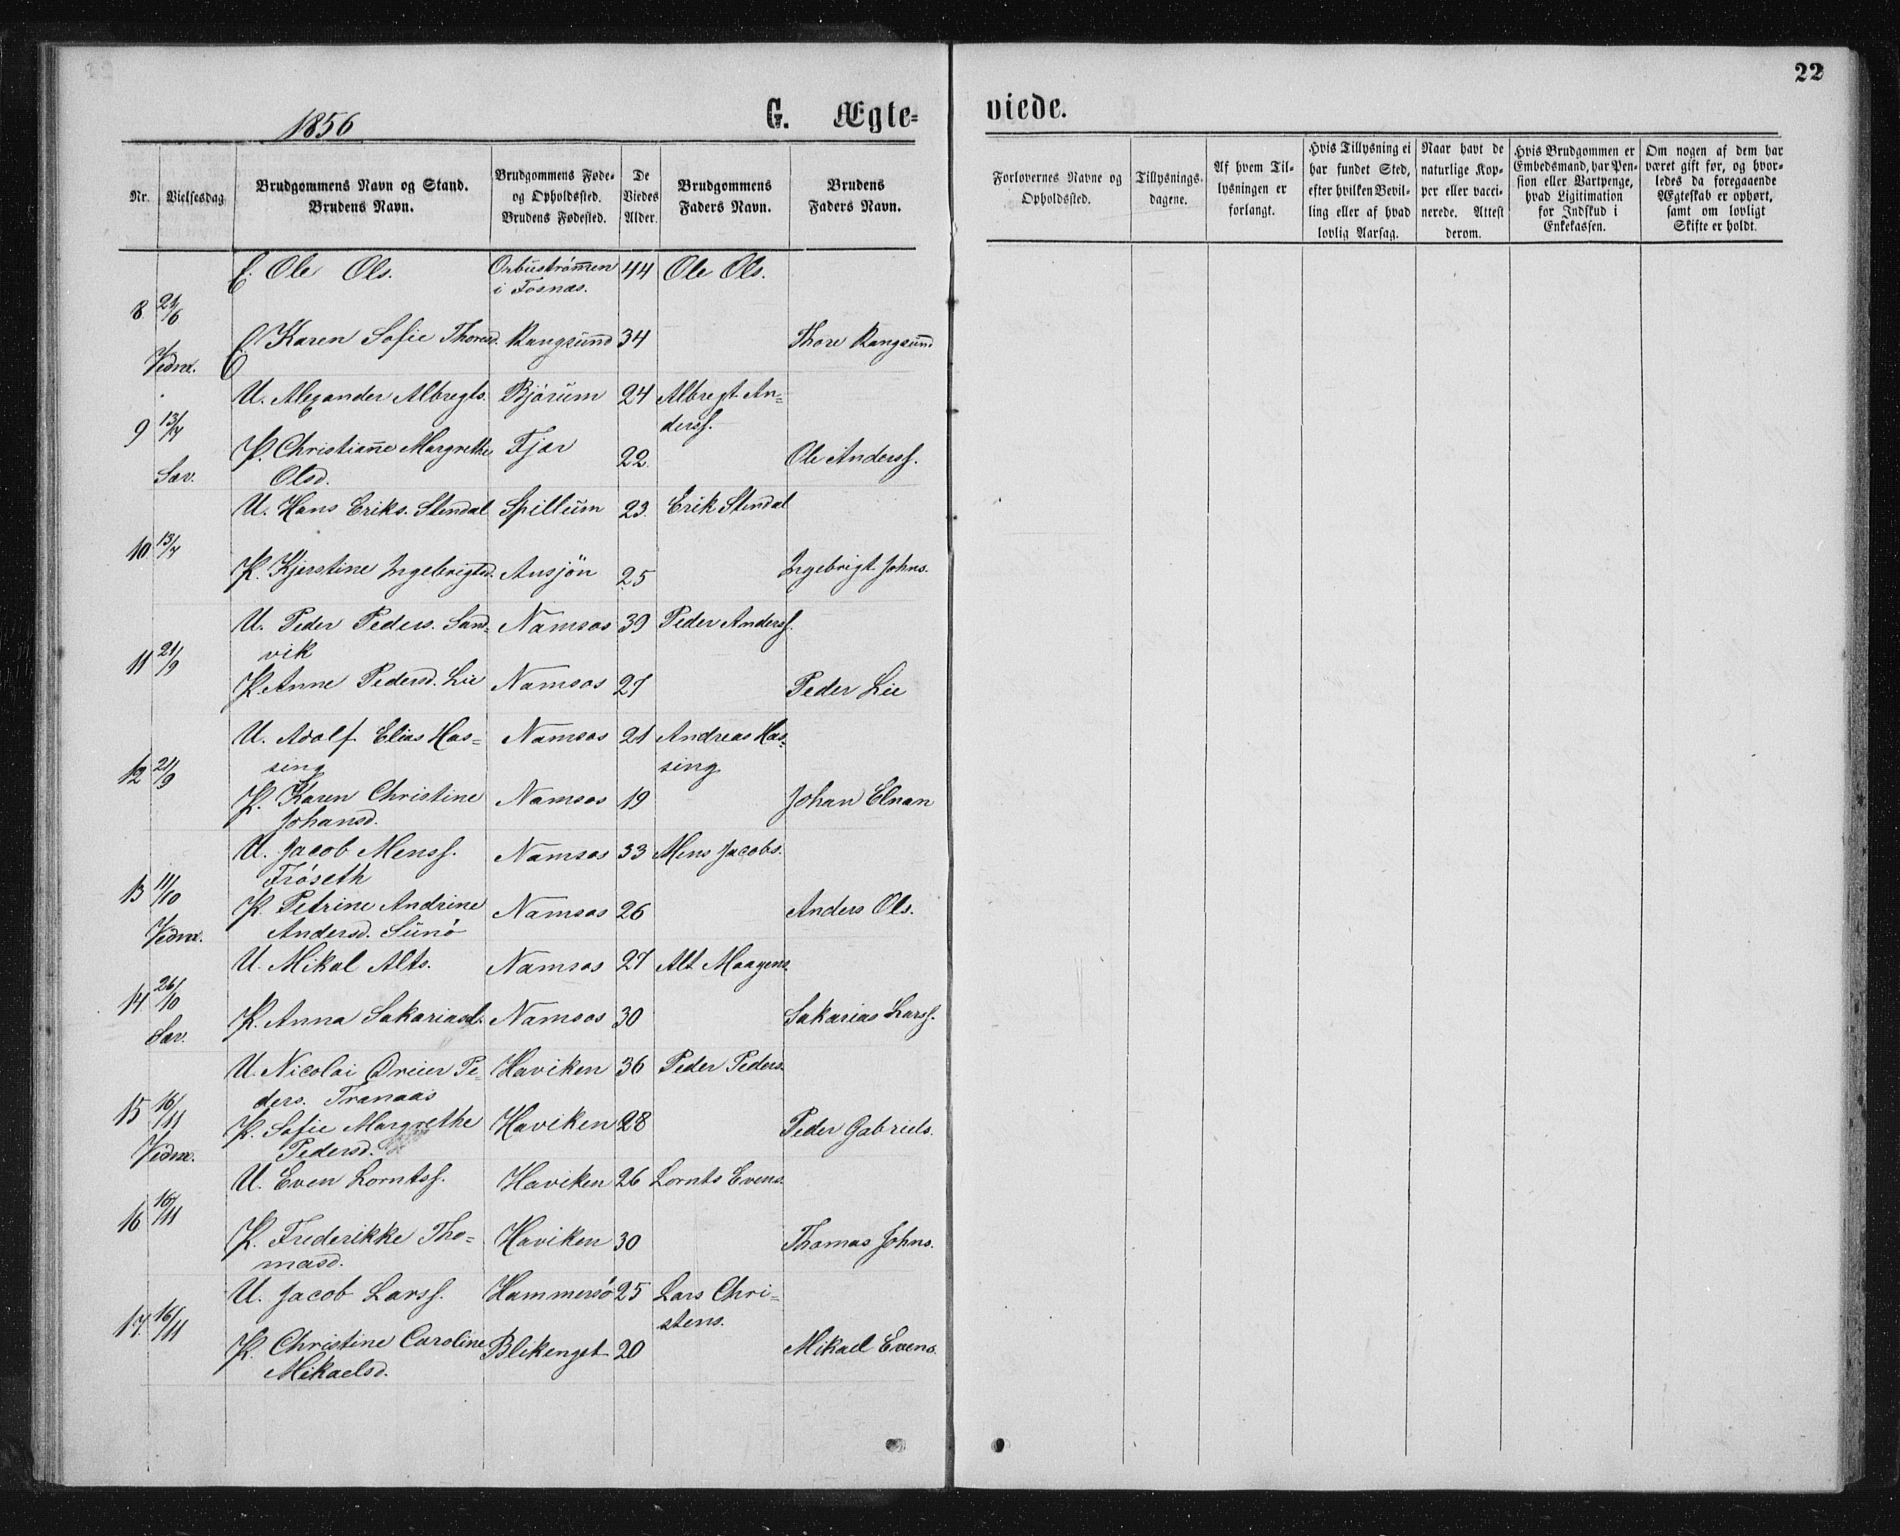 22
1856
G. Ægte=
viede.
Nr.
Vielsesdag
Brudgommens Navn og Stand.
Brudens Navn.
Brudgommens Føde-
og Opholdssted.
Brudens Fødested.
De
Viedes
Alder.
Brudgommens
Faders Navn.
Brudens
Faders Navn.
Forlovernes Navne og
Opholdssted.
Tillysnings-
dagene.
Af hvem Til-
lysningen er
forlangt.
Hvis Tillysning ei
har fundet Sted,
efter hvilken Bevil-
ling eller af hvad
lovlig Aarsag.
Naar havt de
naturlige Kop-
per eller vacci-
nerede. Attest
derom.
Hvis Brudgommen er
Embedsmand, har Pen-
sion eller Vartpenge,
hvad Ligitimation
for Indskud i
Enkekassen.
Om nogen af dem har
været gift før, og hvor-
ledes da foregaaende
Ægteskab er ophørt,
samt om lovligt
Skifte er holdt.
E. Ole Ols. Orbustrømen 44 Ole Ols.
i Fosnæs.
8
E Karen Sofie Thoresd. Rangsund 34 Thore Rangsund
Vedm.
U. Alexander Albregts. Bjørum 24 Albregt An=
derss.
9 13/7
P. Christiane Margrethe Fjær 22 Ole Anderss.
Sæv. Olsd.
U. Hans Eriks. Stendal Spillum 23 Erik Stendal
10 13/7
P. Kjerstine Ingebrigtsd. Ausjön 25 Ingebrigt Johns.
U. Peder Peders. Sand= Namsos 39 Peder Anderss.
vik
11 21/9
P. Anne Pedersd. Lie Namsos 27 Peder Lie
U. Adolf Elias Has= Namsos 21 Andreas Has=
sing sing
12 21/9
P. Karen Christine Namsos 19 Johan Elnan
Johansd.
U. Jacob Menss. Namsos 33 Mens Jacobs.
Frøseth
13 11/10
P. Petrine Andrine Namsos 26 Anders Ols.
Vedm. Andersd. Sunø
U. Mikal Alts. Namsos 27 Alt Maagens.
14 26/10
P. Anna Sakariasd. Namsos 30 Sakarias Larss.
Sæv.
U. Nicolai Dreier Pe= Haviken 36 Peder Peders.
ders. Tranaas
15 16/11
P. Sofie Margrethe Haviken 28 Peder Gabriels.
Vedm. Pedersd.
U. Even Lorntss. Haviken 26 Lornts Evens.
16 16/11
P. Frederikke Tho= Haviken 30 Thomas Johns.
masd.
U. Jacob Larss. Hammersø 25 Lars Chri=
stens.
17. 16/11
P. Christine Caroline Blikenget 20 Mikael Evens.
Mikaelsd.